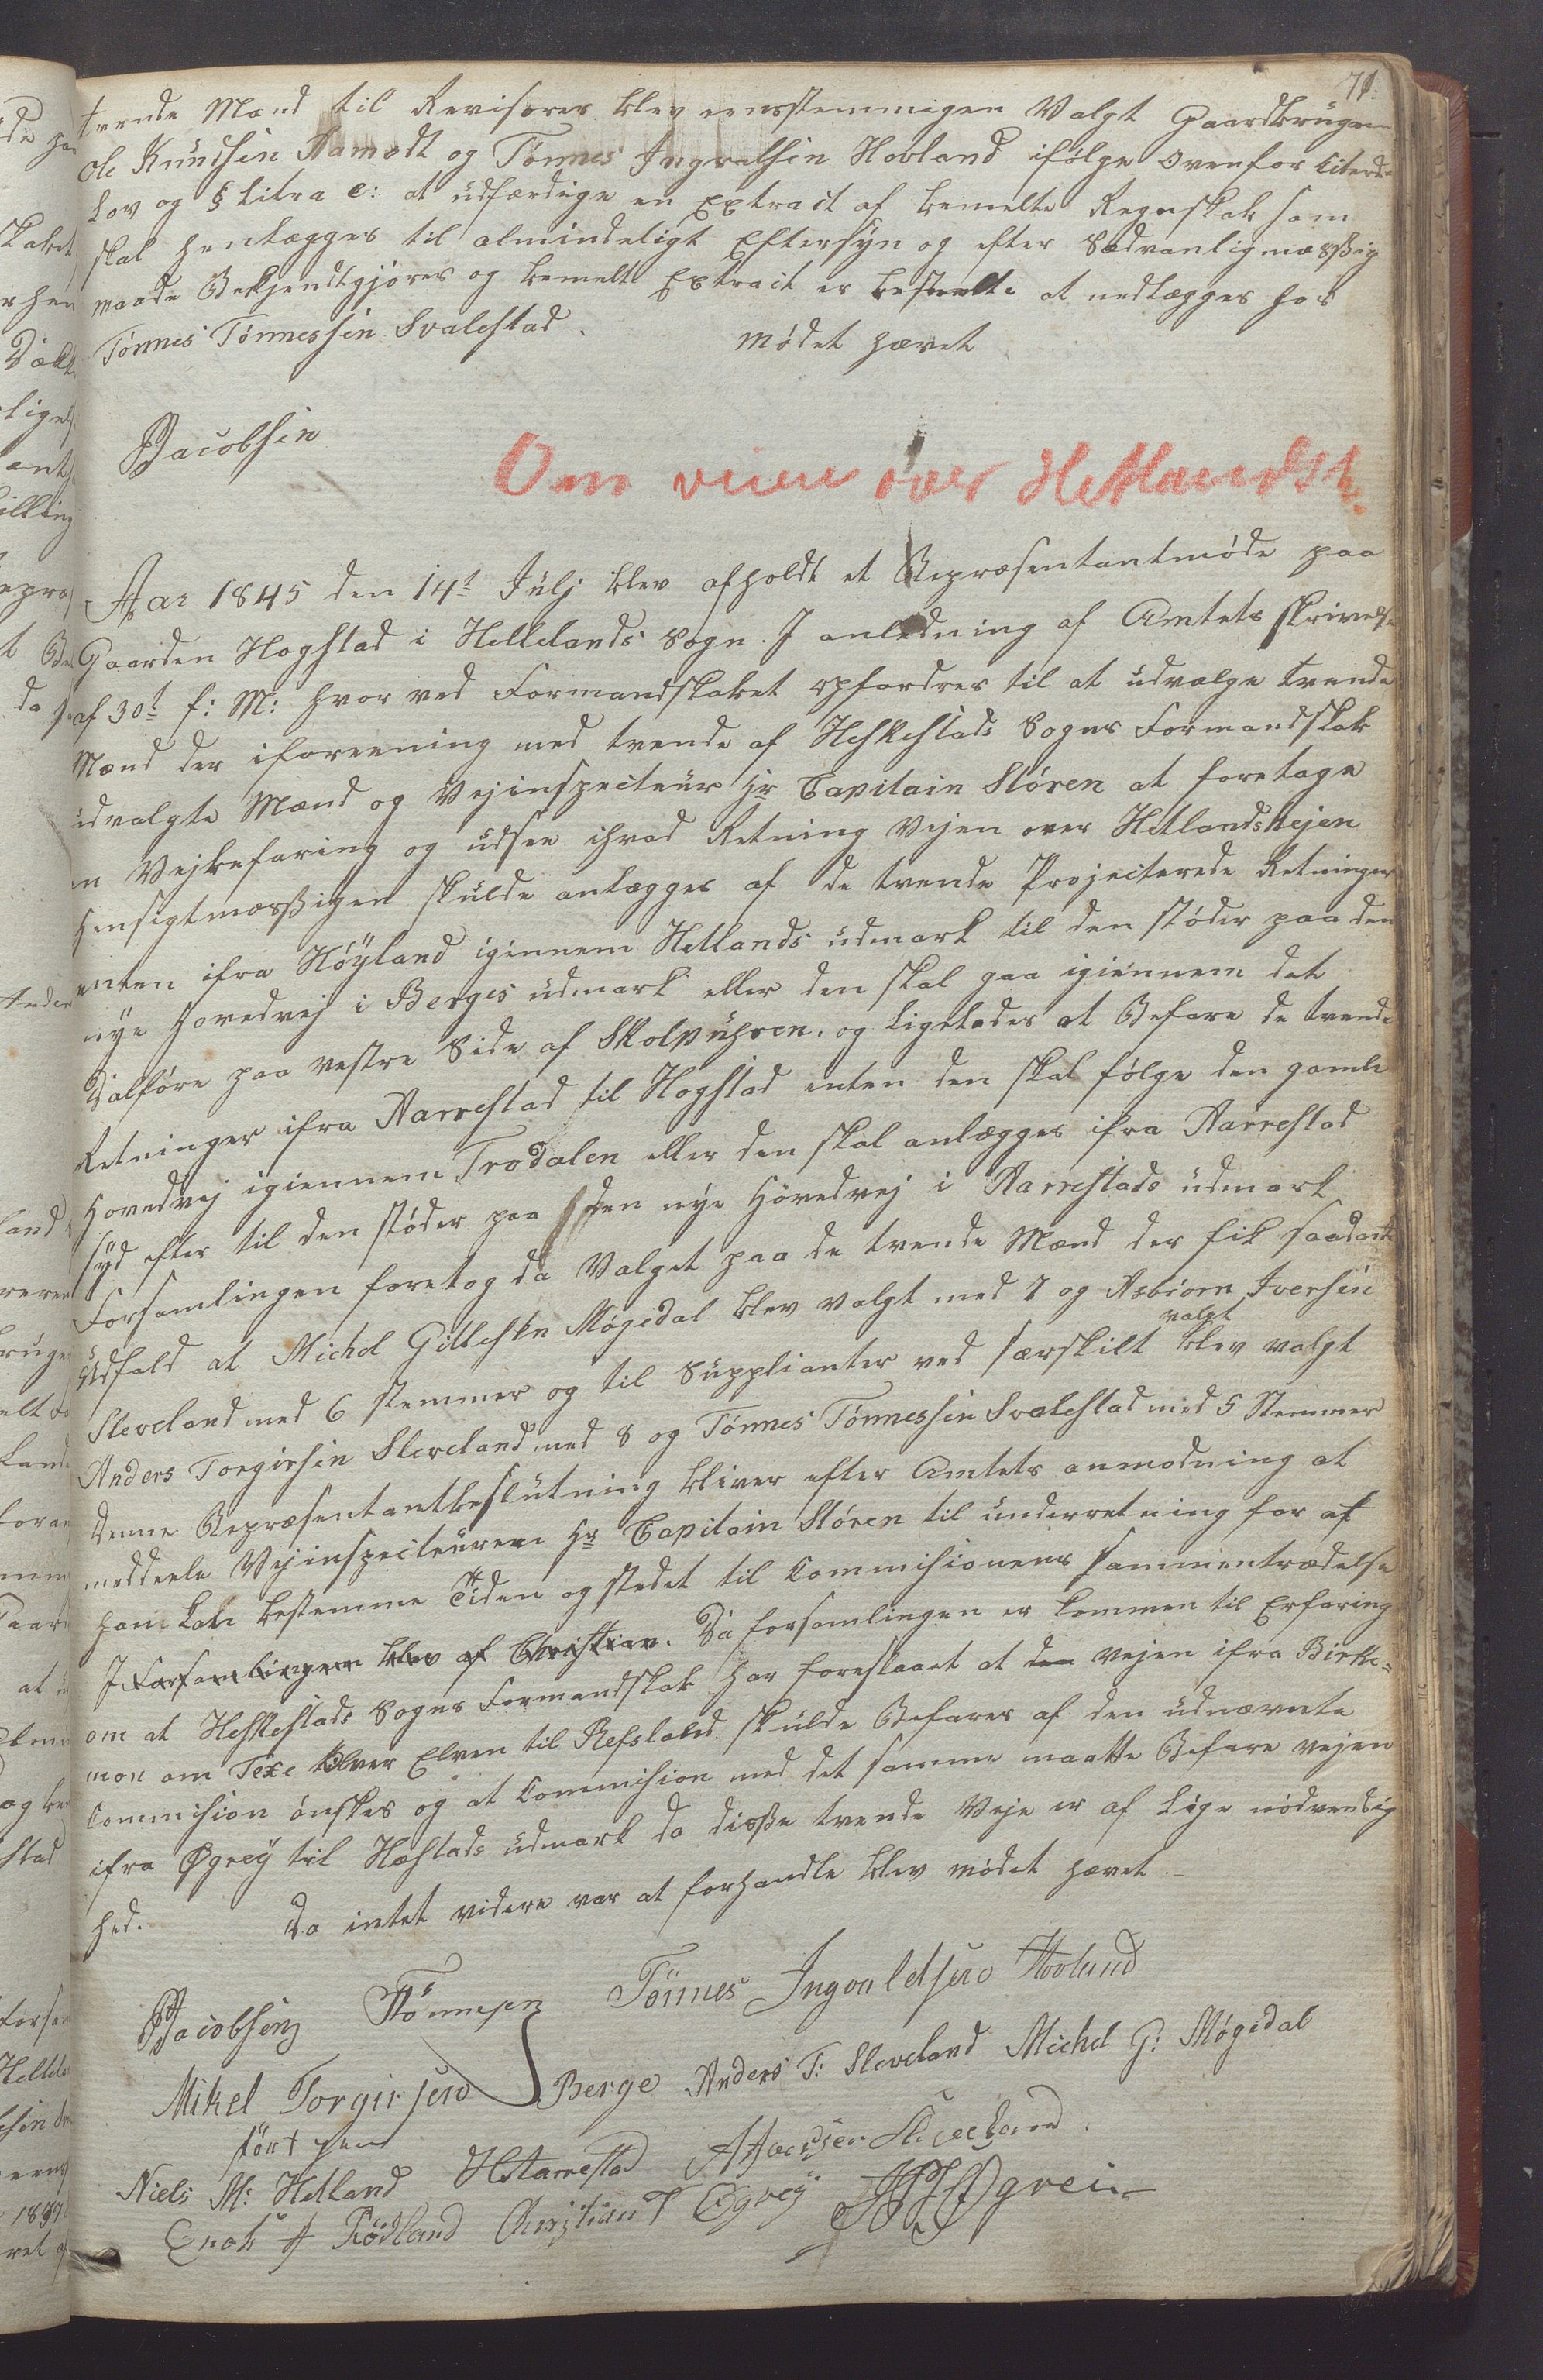 71.
tvende Mænd til Revisorer blev eensstemmigen Valgt Gaardbrugerne
Ole Knüdsen Aamodt og Tønnes Ingvalsen Hovland ifølge ovenfor Citerede
Lov og § Litra e: at üdfærdige en Extract af bemelte Regnskab som
skal henlægges til almindeligt Eftersyn og efter Sædvanligmæssig
maade Bekjendtgjøres og bemelte Extract er bestemt at nedlægges hos
Tønnes Tønnessen Svalestad. Mødet hævet
PJacobsen
Om veien over Hetlandsh.
Aar 1845 den 14t Jülj blev afholdt et Repræsentantmøde paa
Gaarden Hogstad i Hellelands Sogn. I anledning af Amtets Skrivelse
af 30t f: M: hvor ved Formandskabet opfordres til at üdvælge tvende
Mænd der iforeening med tvende af Heskestads Sogns Formandskab
üdvalgte Mænd og Vejinspecteur Hr Capitain Stóren at foretage
en Vejbefaring og üdsee ihvad Retning Vejen over Hetlandshejen
Hensigtmæssigen skülde anlægges af de tvende Projecterede Retninger
enten ifra Höÿland igiennem Hetlands üdmark til den støder paa den
nye Hovedvej i Berges üdmark eller den skal gaa igiennem det
Dalføre paa vestre Side af Skolpuhren. og Ligeledes at Befare de tvende
Retninger ifra Aarrestad til Hogstad enten den skal følge den gamle
Hovedvej igiennem Trodalen eller den skal anlægges ifra Aarrestad
Syd efter til den støder paa den nye Hovedvej i Aarrestads üdmark
Forsamlingen foretog da Valget paa de tvende Mænd der fik saadant
Udfald at Michel Gittlesen Møgedal blev valgt med 7 og Asbiørn Iversen
Sleveland med 6 stemmer og til Süpplianter ved særskilt valgt blev valgt
Anders Torgersen Sleveland med 8 og Tønnes Tønnessen Svalestad med 5 Stemmer
Denne Repræsentantbeslütning bliver efter Amtets anmodning at
meddeele Vejinspecteuren Hr Capitain Stóren til ünderretning for at
han kan bestemme Tiden og stedet til Commisionens Sammentrædelse
I Forsamlingen blev af Christian. Da forsamlingen er kommen til Erfaring
om at Heskestads Sogns Formandskab har foreslaaet at den Vejen ifra Birke-
mon om Texe over Elven til Refsland skülde Befares af den üdnævnte
Commision ønskes og at Commision med det samme maatte Befare vejen
ifra Øgreÿ til Hæstads üdmark da disse tvende Veje er af lige nødvendig
hed. Da intet videre var at forhandle blev mødet hævet.
PJacobsen TTónnesen Tönnes Ingvaldsen Hovland
Mikel Torgersen Berge Anders T: Sleveland Michel G: Møgedal
ført pen
Niels M: Hetland HAarrestad AIversen Sleveland.
Enok A Rödland Christian T Øgreÿ Øgrei